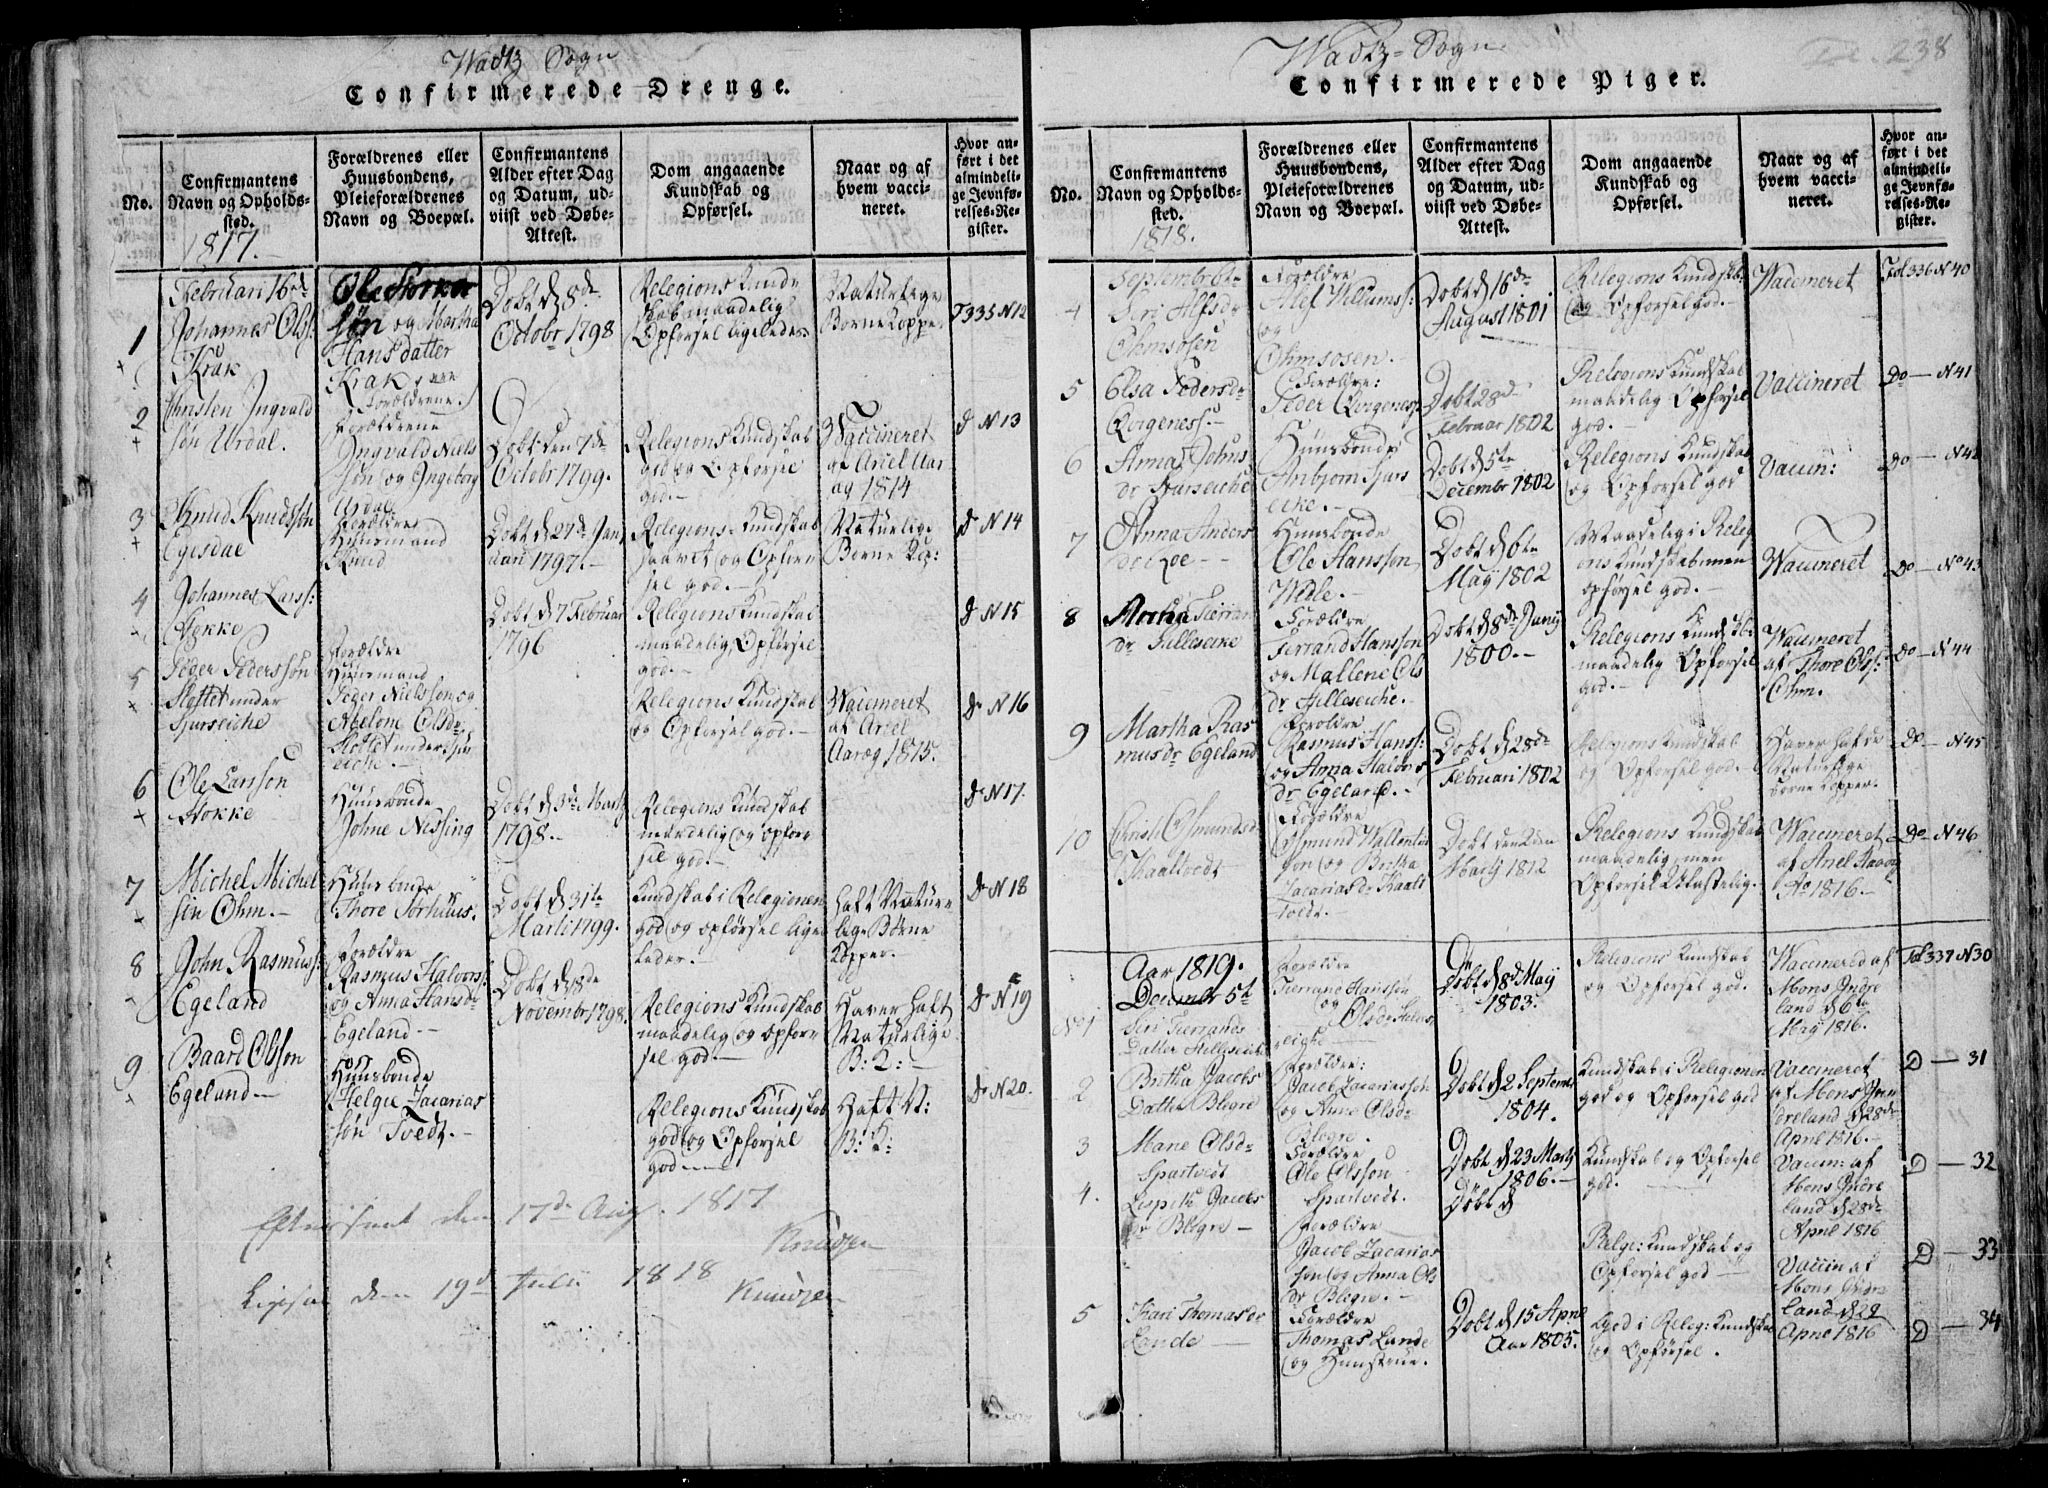 Wadtz Sogn
Confirmerede Drenge.
No.
Confirmantens
Navn og Opholds-
sted.
1817.
Forældrenes eller
Huusbondens,
Pleieforældrenes
Navn og Boepæl.
Confirmantens
Alder efter Dag
og Datum, ud-
viist ved Døbe-
Attest.
Dom angaaende
Kundskab og
Opførsel.
Naar og af
hvem vacci-
neret.
Hvor an-
ført i det
almindeli-
ge Jevnfø-
relses-Re-
gister.
Februari 16de
1
Johannes Ols:
Krak
Ole
søn og Martha
Hansdatter
Krak
Forældrene
Døbt d 8de
Octobr 1798
Relegions Kund
skab maadelig
Opførsel ligeledes
Naturlige
Børne Kopper
F 335 N 12
2
Christen Ingvald
søn Urdal.
Forældrene
Ingvald Niels
søn og Ingeborg
Urdal
Døbt den 7de
Octobr 1799.
Relegions Kundskab
god og Opførsel
god.
Waccineret
af Ariel Aar
og 1814
d N 13
3
Knud Knudssøn
Egesdal
Forældre
Huusmand
Knud
Døbt d 27de Jan
uari 1797.
Relegions Kundskab
og Opfør
sel god.
Naturlige
Børne Kop:
d N 14
4
Johannes Larss:
Stokke
Døbt d 7 Februar
1796
Relegions Kundskab
maadelig, Opførsel
god.
d N 15
5
Peder Pederssøn
Slottet under
Sjurseiche
Forældre
Huusmand
Peder Nielssøn og
Abelone Olsdr
Slottet under Sjur
eiche.
Relegions Kundskab
og Opførsel god.
Waccineret
af Ariel
Aarøg 1815.
d N 16
6
Ole Larsson
Stokke
Huusbonde
Johne Nessing
Døbt d 3de Martz
1798.
Relegions Kundskab
maadelig og opfør
sel god.
d N 17.
7
Michel Michel
søn Ohm.
Huusbonde
Thore Storhuus.
Døbt d 31te
Marti 1799.
Kundskab i Relegionen
god og opførsel lige
ledes.
haft Natur
lige Børne
Kopper.
d N 18
8
John Rasmuss:
Egeland
Forældre
Rasmus Halvorss:
og Anna Hansdr
Egeland.
Døbt d 8de
Novembr 1798.
Relegions Kundskab
maadelig og opfør
sel god.
Haver haft
Naturlige
B: K:
d N 19
9
Baard Olsson
Egeland
Huusbonde
Helge Zacarias
søn Tvedt.
Relegions Kundskab
god og Opførsel
god
Haft N:
B: K:
d N 20.
Efterseet den 17de Aug. 1817
Knudzen
Ligesaa den 19d Julii 1818
Knudzen
Wadtz-Sogn
238
Confirmerede Piger.
No.
Confirmantens
Navn og Opholds-
sted.
1818.
Forældrenes eller
Huusbondens,
Pleieforældrenes
Navn og Boepæl.
Confirmantens
Alder efter Dag
og Datum, ud-
viist ved Døbe-
Attest.
Dom angaaende
Kundskab og
Opførsel.
Naar og af
hvem vacci-
neret.
Hvor an-
ført i det
almindeli-
ge Jevnfø-
relses-Re-
gister.
4
Septembr 6te
Siri Alfsdr
Ohmsosen
Forældre
Alef Willumss:
og
Ohmsosen.
Døbt d 16de
August 1801
Relegions Kundskab
og Opførsel god.
Waccineret
Fol 336 N 40
5
Elsa Pedersdr
Qvigeness.
Forældre:
Peder Qvigeness
Døbt 28de
Februar 1802
Relegions Kundskab
maadelig Opførsel
god.
Vaccineret
Do N 41
6
Anna Johns
dr Sjurseiche
Huusbonde
Anbjørn Sjurs
eike.
Døbt d 5te
Decembr 1802
Relegions Kundskab
og Opførsel god
Vaccin:
Do N 42
7
Anna Anders
dr Loe
Huusbonde
Ole Hansson
Widle.
Døbt d 6te
Maij 1802
Maadelig i Releg
ions Kundskab men
opførsel god.
Waccineret
Do No 43
8
Martha Fierran
dr Hilleseike
Forældre
Fierrand Hansson
og Mallene Ols
dr Hilleseiche.
Døbt d 8de Junij
1800.
Relegions Kundskab
maadelig Opførsel
god.
Waccineret
af Thore Ols:
Ohm.
Do N 44
9
Martha Ras
musdr Egeland
Forældre
Rasmus Hanss:
og Anna Halvors
dr Egeland.
Døbt d 28de
Februari 1802
Relegions Kundskab
og Opførsel god.
Haver haft de
Naturlige
børne Kopper.
Do N 45
10
Christi Osmundsd
Kaaltvedt
Forældre
Osmund Wallentin
søn og Britha
Zacariasdr Kaalt
tvedt.
Døbt den 2den
Martij 1812
Relegions Kundskab
maadelig men
Opførsel Ulastelig.
Waccineret
af Ariel Aarøg
Ao 1816.
Do N 46
Aar 1819.
Decembr 5te
No 1
Siri Fierrands
Datter Hilleseich
Forældre
Fierrand Hansson
og Olsdr Hilles
eighe
Døbt d 8de Maij
1803.
Relegions Kundskab
og Opførsel god.
Waccinered af
Mons Indre
land d 6te
Maij 1816.
Fol 337 N 30
2
Britha Jacobs
Datter Blegre
Forældre:
Jacob Zacariassøn
og Anne Olsdr
Blegre.
Døbt d 2 Septembr
1804.
Kundskab i Relegionen
god og Opførsel god
Vaccineret
af Mons Inn
dreland d 28de
April 1816.
D 31
3
Mane Olsdr
Spartvedt
Forældre
Ole Olsson
Spartvedt.
Døbt d 23 Martij
1806.
Kundskab og Opførsel
god.
Vaccin: af
Mons Indre
land d 28de
April 1816
D 32
4.
Jacobs
dr Blegre
Forældre
Jacob Zacarias
søn og Anna Ols
dr Blegre.
Døbt d
Relge: Kundskab og
Opførsel god
Vaccin af
Mons Indre
land d 29
April 1816
D 33
5
Kari Thomasdr
Lande
Forældre
Thomas Lande
og Hunstrue.
Døbt d 15 April
Aar 1805.
god i Releg: Kundskab
og Opførsel.
D 34